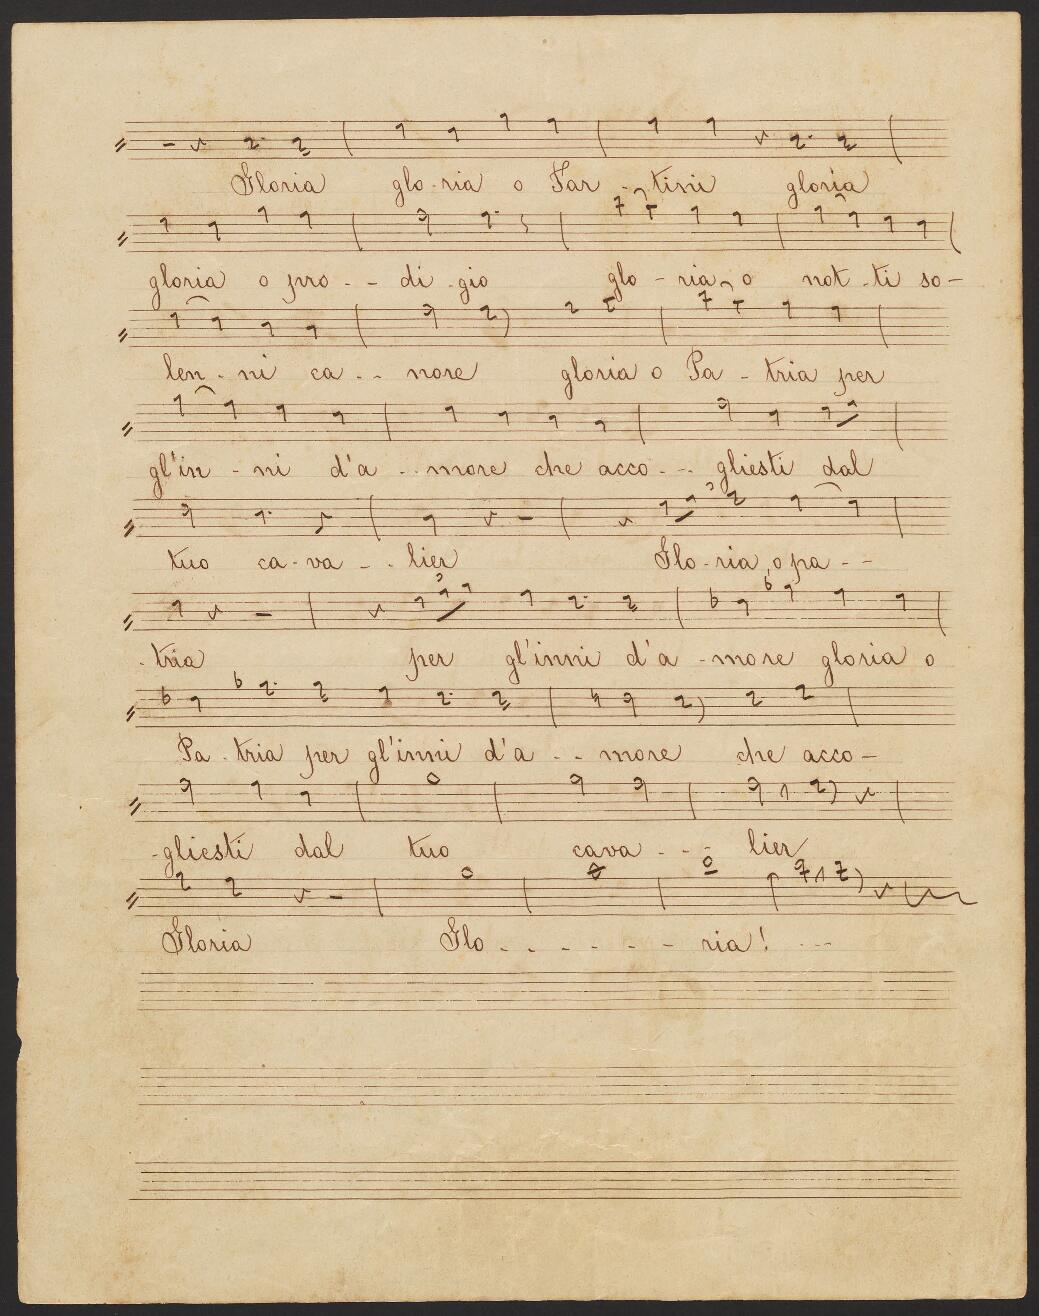 Gloria glo-ria o Tar - tini gloria
gloria o pro - - di - gio glo - ria o not - ti so -
len - ni ca - - nore gloria o Pa - tria per
gl'in - ni d'a - - more che acco - - - gliesti dal
tuo ca - va - - - lier Glo - ria o pa - -
- tria per gl'inni d'a - more gloria o
Pa - tria per gl'inni d'a - - more che acco -
- gliesti dal tuo cava - - - lier
Gloria Glo - - - - - - ria! - - -